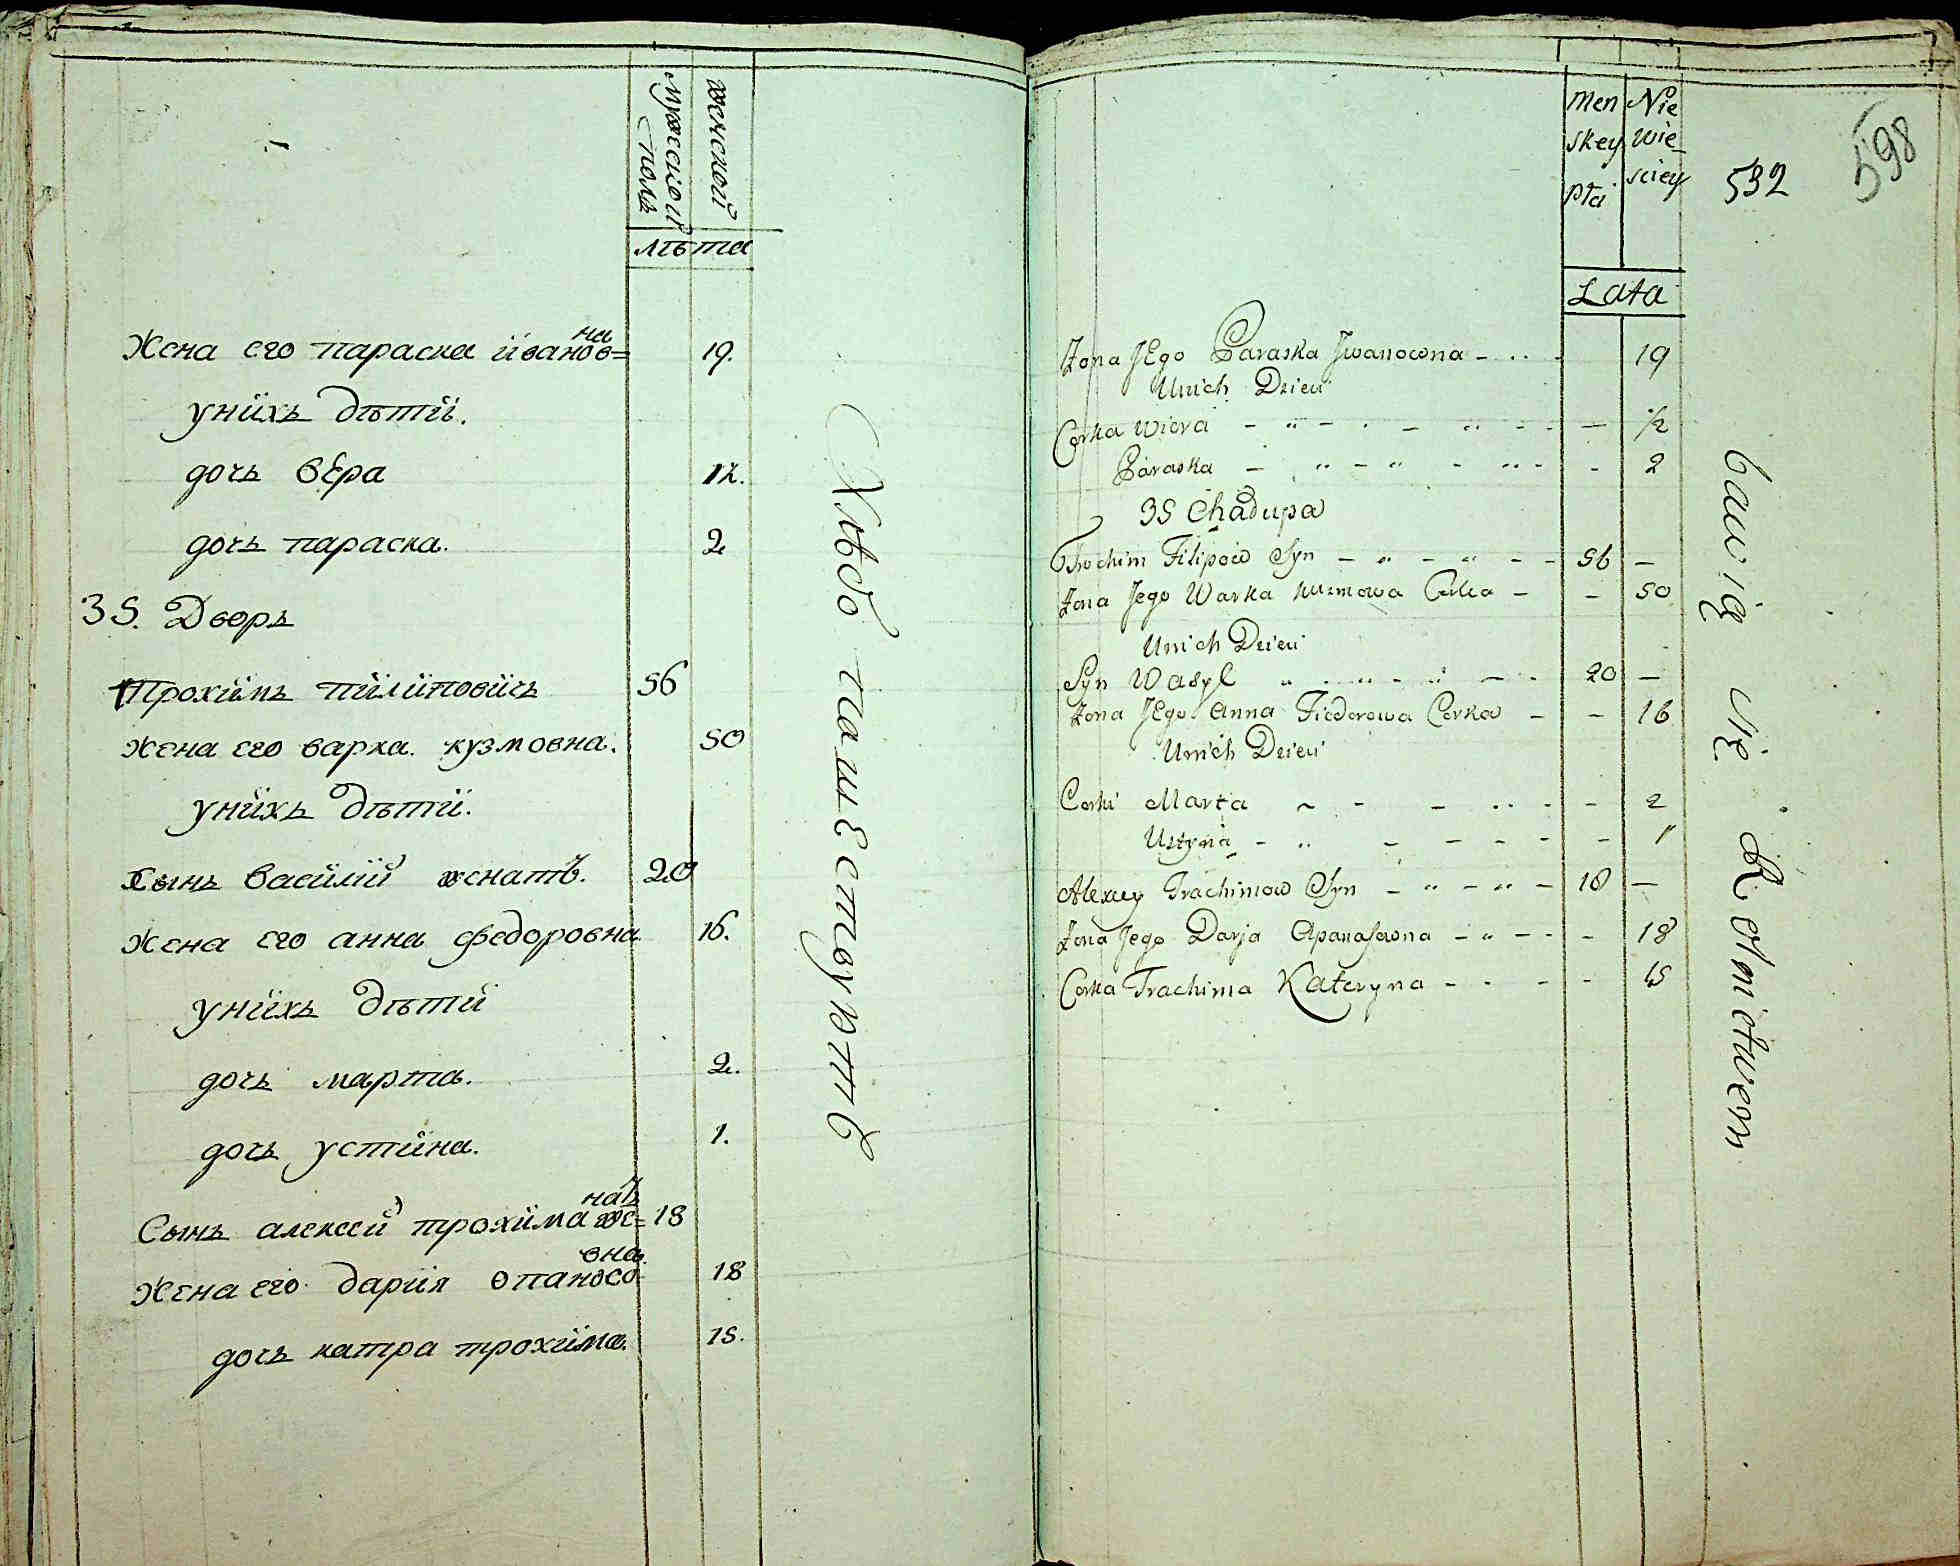 мужескои
полъ
женской
лѣта
на
Жена его параска ивано́в= 19.
унихъ дѣти.
дочь вера ½.
дочь параска. 2
35. Дворъ
Трохимъ пилиповичъ 56
жена его варка кузмовна. 50
унихъ дѣти.
Сынъ василий женатъ. 20
жена его анна федоровна 16.
унихъ дѣти
дочь марта. 2.
дочь устина. 1.
натъ
Сынъ алексей трохима же= 18
вна
жена его дария опанасо 18
дочь катра трохима. 15.
Хлѣбопашествуютъ
Men Nie
skey wie_
Płci sciey
Lata
532
598
Żona JEgo Paraska Jwanowna 19
Unich Dzieci
Corka Wiera ½
Paraska 2
35 Chałupa
Trochim Filipow Syn 56 –
Żona Jego Warka Kuzmowa Corka – 50
Unich Dzieci
Syn Wasyl 20 –
Żona JEgo Anna Fiedorowa Corka – 16
Unich Dzieci
Corki Marta 2
Ustyna 1
Alexiey Trachimow Syn 18 –
Żona Jego Darja Apanasowna 18
Corka Trachima Kateryna 15
bawią się Rolnictwem